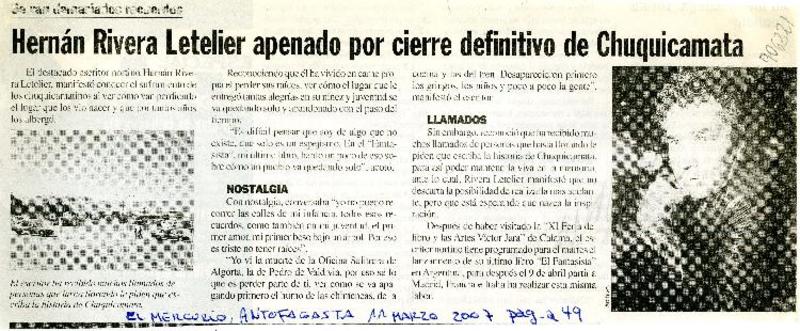 Se van demasiados recuerdos
Hernán Rivera Letelier apenado por cierre definitivo de Chuquicamata
906221
El destacado escritor nortino Hernán Rive-
ra Letelier, manifestó conocer el sufrimiento
de los chuquicamatinos al ver como van perdiendo
el lugar que los vio nacer y que por tantos años
los albergó.
El escritor ha recibido muchos llamados de
personas que hasta llorando le piden que es-
criba la historia de Chuquicamata.
Reconociendo que él ha vivido en carne pro-
pia el perder sus raíces, ver cómo el lugar que le
entregó tantas alegrías en su niñez y juventud se
va quedando solo y abandonado con el paso del
tiempo.
"Es difícil pensar que soy de algo que no
existe, que solo es un espejismo. En el "Fantas-
ista", mi último libro, hablo un poco de eso sobre
cómo un pueblo va quedando solo", acotó.
NOSTALGIA
Con nostalgia, conversaba "yo no puedo re-
correr las calles de mi infancia, todos esos re-
cuerdos, como también en mi juventud, el
primer amor, mi primer beso bajo un árbol. Por eso
es triste no tener raíces".
"Yo vi la muerte de la Oficina Salitrera de
Algorta, la de Pedro de Valdivia, por eso sé lo
que es perder parte de ti, ver como se va apa-
gando primero el humo de las chimeneas, de la
cocina y las del tren. Desaparecieron primero
los gringos, los niños y poco a poco la gente",
manifestó el escritor.
LLAMADOS
Sin embargo, reconoció que ha recibido mu-
chos llamados de personas que hasta llorando le
piden que escriba la historia de Chuquicamata,
para así poder mantenerla viva en la memoria,
ante lo cual, Rivera Letelier manifestó que no
descarta la posibilidad de realizarla más adelan-
te, pero que está esperando que nazca la inspi-
ración.
Después de haber visitado la "XI Feria de
libro y las Artes Víctor Jara" de Calama, el es-
critor nortino tiene programado para el martes el
lanzamiento de su último libro "El Fantasista"
en Argentina, para después el 9 de abril partir a
Madrid, Francia e Italia ha realizar esta misma
labor.
EL MERCURIO, ANTOFAGASTA 11 MARZO 2007 pág. a 49